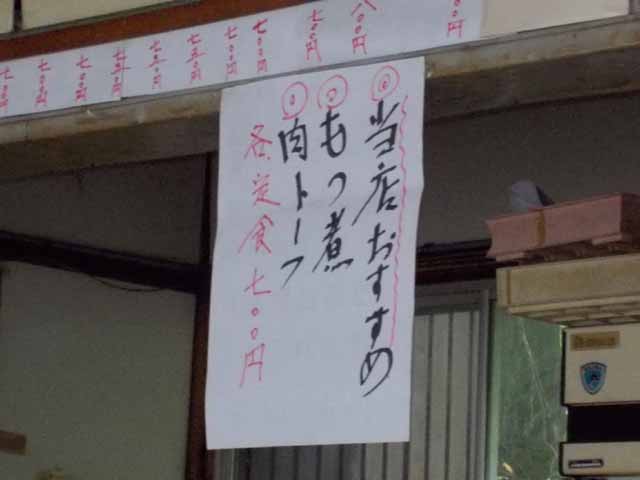 ◎当店おすすめ
◎もつ煮
◎肉トーフ
各定食七〇〇円
七〇〇円
八〇〇円
七〇〇円
七〇〇円
七〇〇円
七五〇円
七五〇円
七〇〇円
七〇〇円
七〇〇円